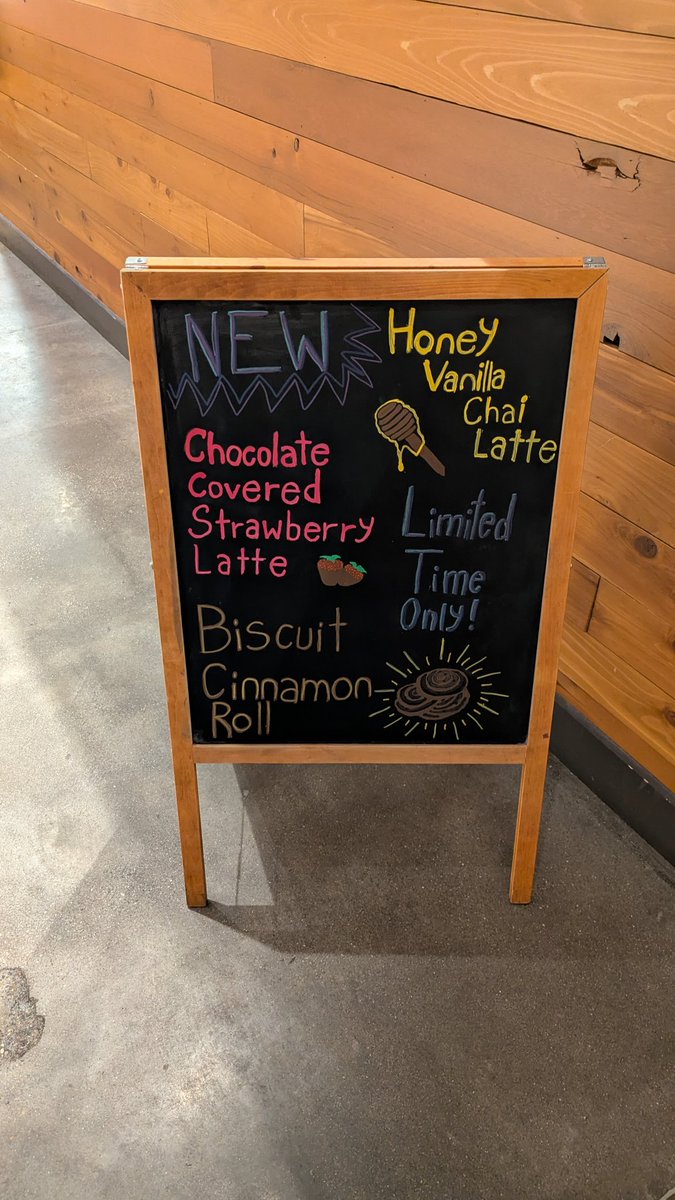 NEW
Chocolate
Covered
Strawberry
Latte
Honey
Vanilla
Chai
Latte
Limited
Time
Only!
Biscuit
Cinnamon
Roll